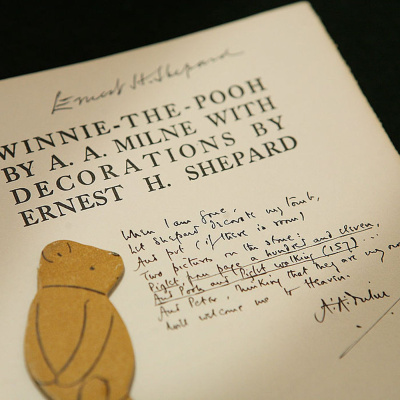 Ernest H. Shepard
WINNIE-THE-POOH
BY A. A. MILNE WITH
DECORATIONS BY
ERNEST H. SHEPARD
When I am gone,
Let Shepard decorate my tomb,
And put (if there is room)
Two pictures on the stone:
Piglet from page a hundred and eleven,
And Pooh and Piglet walking (157)...
And Peter, thinking that they are my
Will welcome me to Heaven.
A. A. Milne